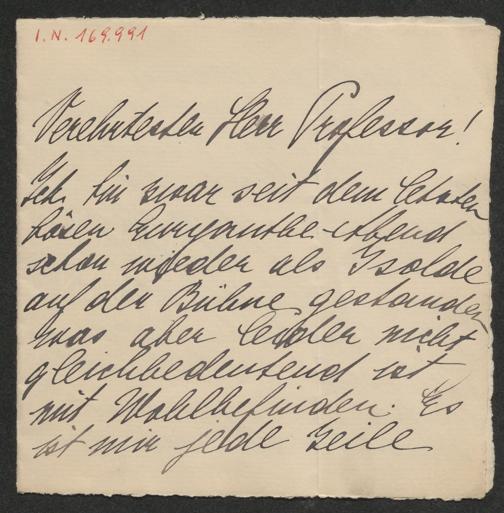 I. N. 169.991
Verehrtester Herr Professor!
Ich bin zwar seit dem letzten
bösen Euryanthe-Abend
schon wieder als Isolde
auf der Bühne gestanden
was aber leider nicht
gleichbedeutend ist
mit Wohlbefinden. Es
ist mir jede Zeile